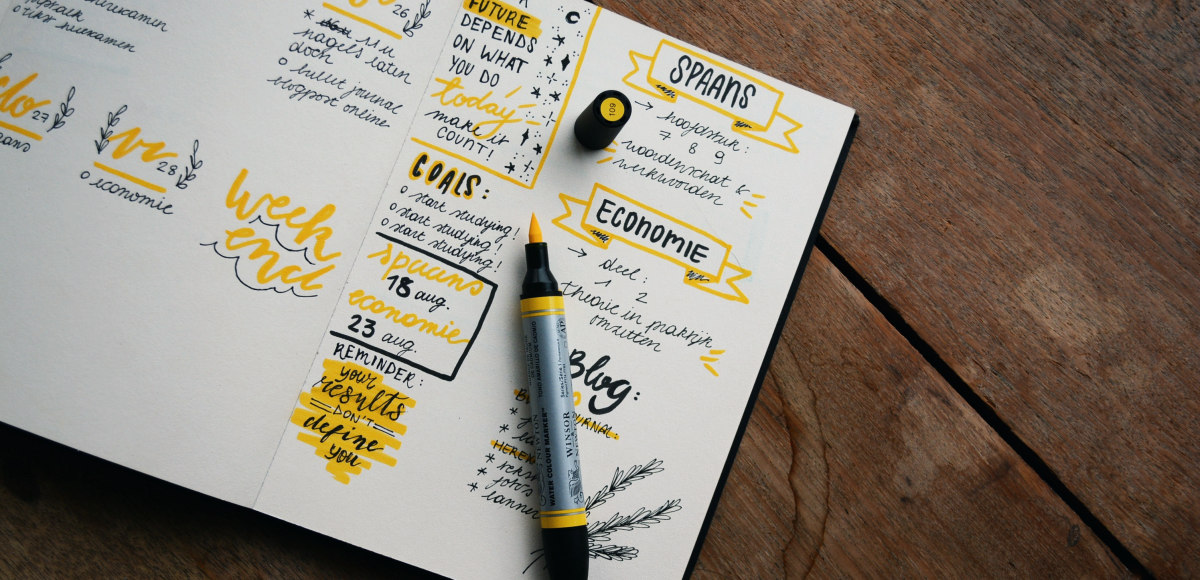 herexamen
herexamen
26
nagels laten
doen
o bullet journal
blogpost online
do 27
vr 28
o economie
week
end
FUTURE
DEPENDS
ON WHAT
YOU DO
today
make it
COUNT!
GOALS:
o start studying!
o start studying!
o start studying!
spaans
18 aug.
economie
23 aug.
REMINDER:
your
results
DON'T
define
you
109
SPAANS
→ hoofdstuk:
7 8 9
woordenschat &
werkwoorden
ECONOMIE
→ deel:
1 2
theorie in praktijk
omzetten
Blog:
JOURNAL:
HEREX
* foto's
WATER COLOUR MARKER™
WINSOR
& NEWTON